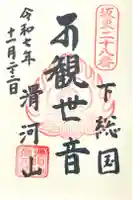 坂東二十八番
下総国
大観世音
滑河山
令和七年
十一月二十二日